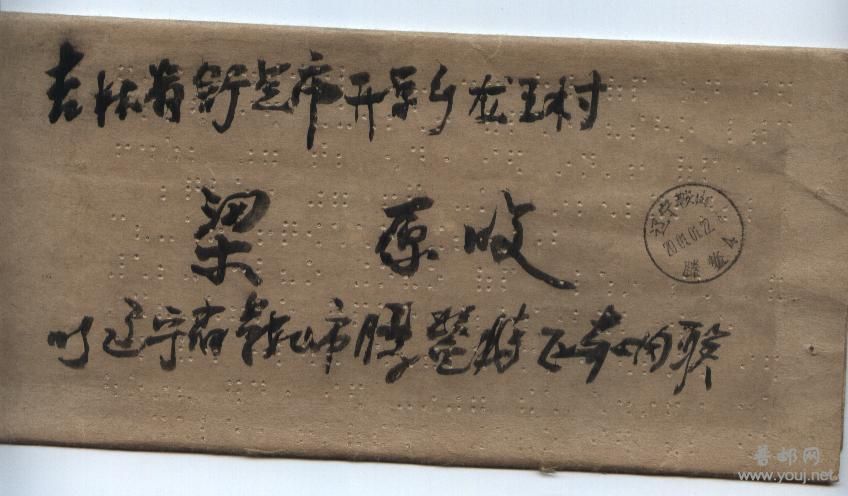 吉林省舒兰市开原乡龙王村
梁 原收
辽宁鞍山
腾鳌
辽宁省鞍山市腾鳌特区
普邮网
www.youj.net